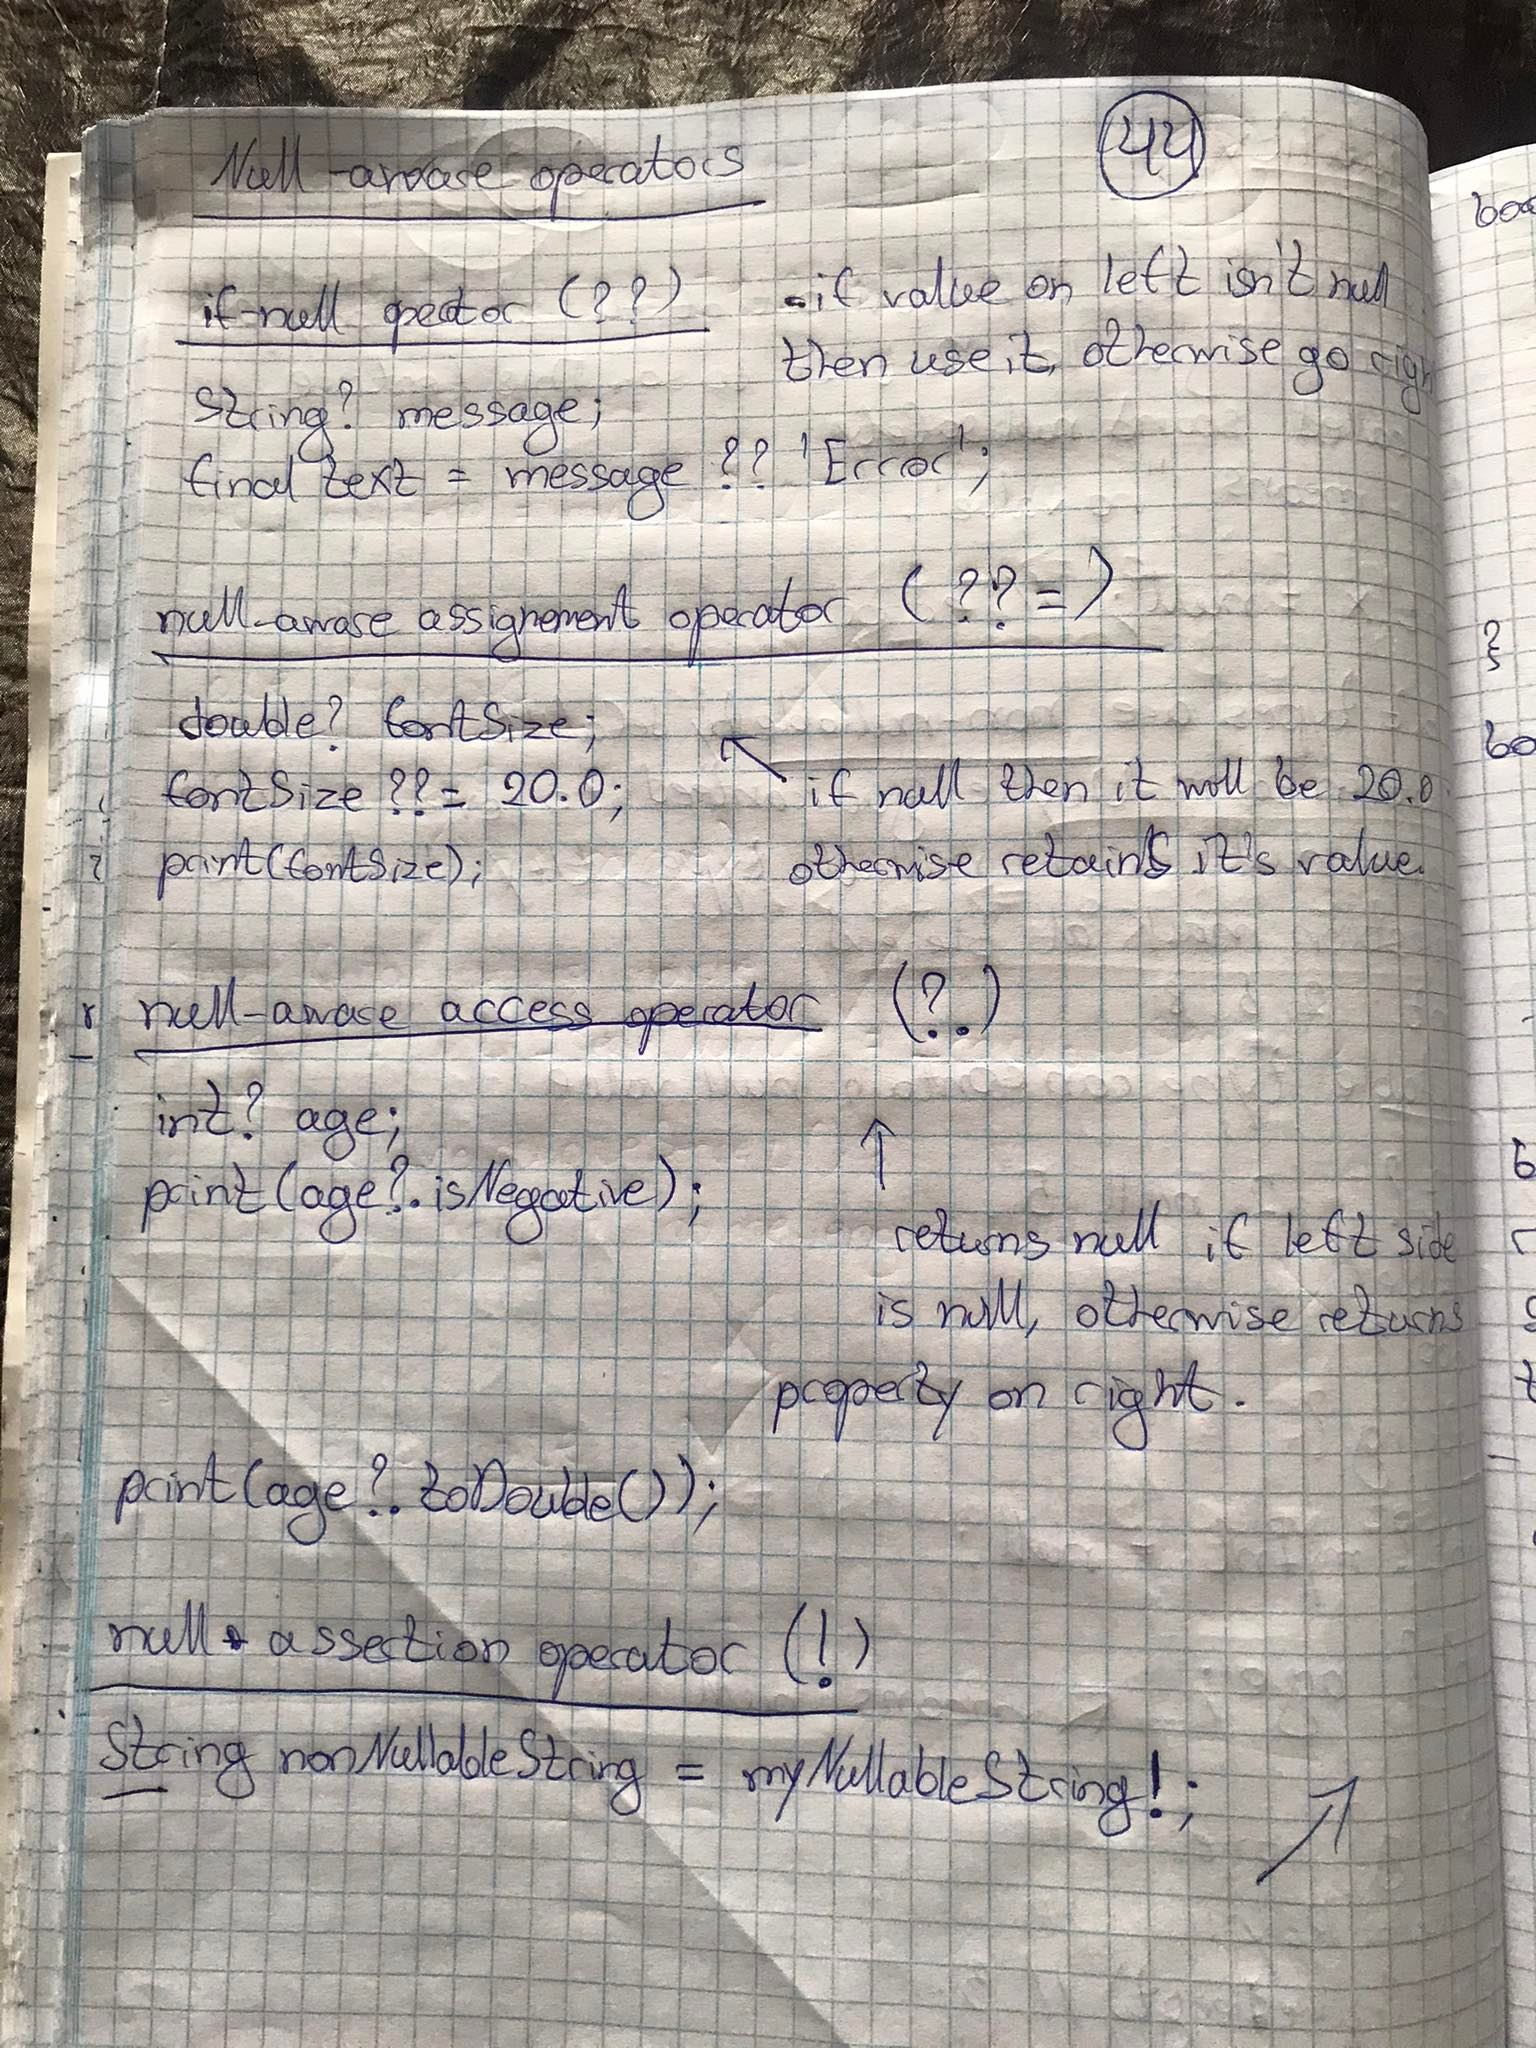 Null-aware operators
44
if-null opeator (??)
- if value on left isn't null
then use it, otherwise go righ
String? message;
final text = message ?? 'Error';
null-aware assignement operator (??=)
double? fontSize;
fontSize ??= 20.0;
print(fontSize);
if null then it will be 20.0
otherwise retains it's value.
null-aware access operator (?.)
int? age;
print(age?.isNegative);
returns null if left side
is null, otherwise returns
property on right.
print(age?.toDouble());
null assertion operator (!)
String nonNullableString = myNullableString!;